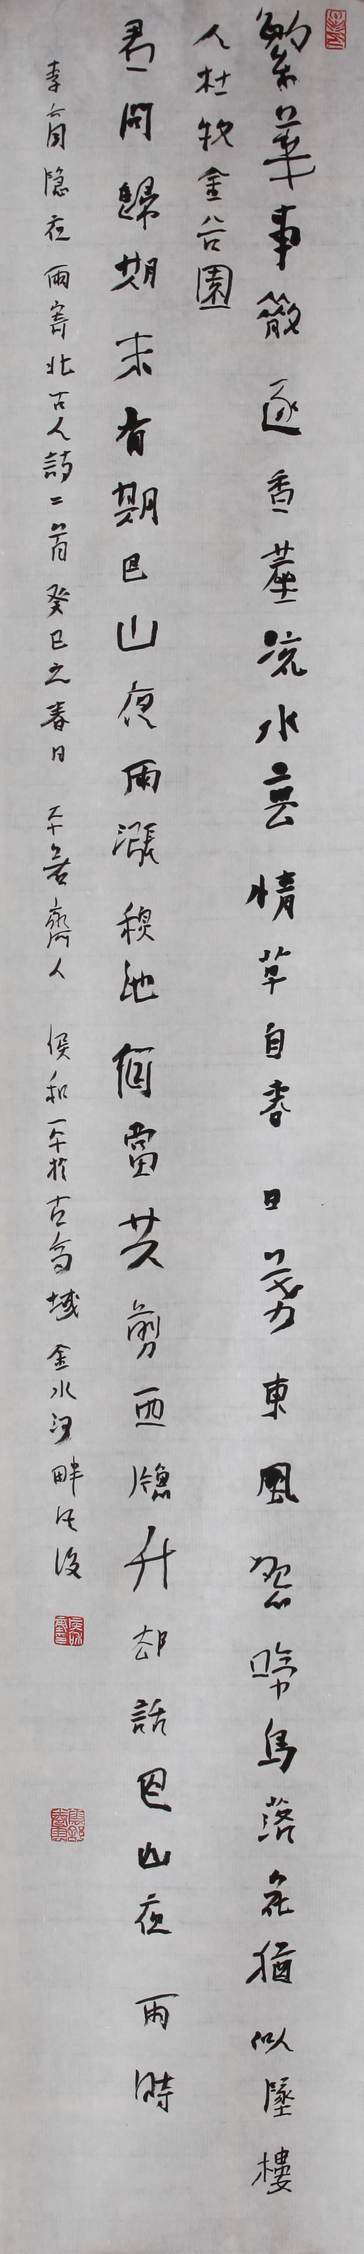 繁華事散逐香塵流水無情草自春日暮東風怨啼鳥落花猶似墜樓
人杜牧金谷園
君問歸期未有期巴山夜雨漲秋池何當共剪西牕升却話巴山夜雨時
李商隐夜雨寄北古人詩二首癸巳之春日 不苦齋人 侯和平於古高城金水河畔